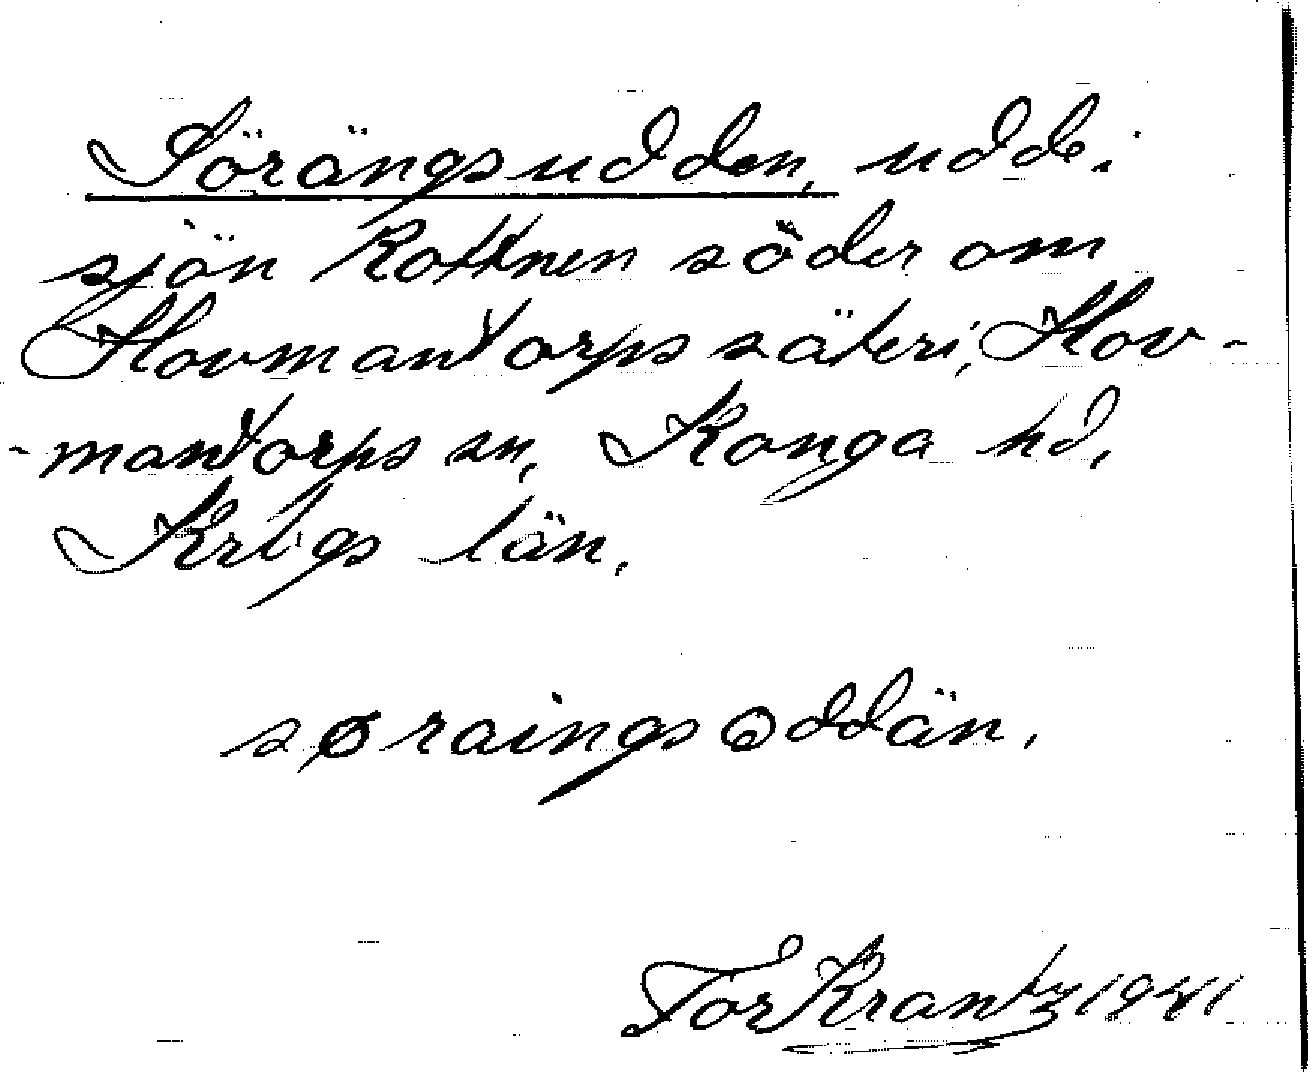 Sörängsudden, udde i
sjön Rottnen söder om
Hovmantorps säteri, Hov-
-mantorps sn, Konga hd,
Krbgs län.
søraingsoddän.
Tor Krantz 1941